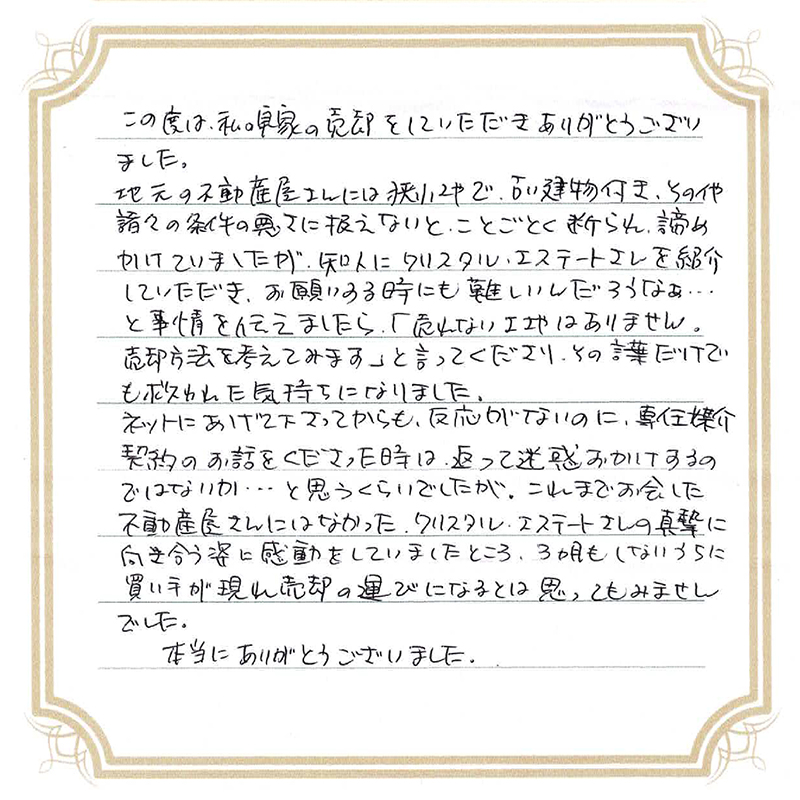 この度は、私の実家の売却をしていただきありがとうござい
ました。
地元の不動産屋さんには狭小地で、古い建物付き、その他
諸々の条件の悪さに扱えないと、ことごとく断られ、諦め
かけていましたが、知人にクリスタル・エステートさんを紹介
していただき、お願いする時にも難しいんだろうなぁ…
と事情を伝えましたら、「売れない土地はありません。
売却方法を考えてみます」と言ってくださり、その言葉だけで
も救われた気持ちになりました。
ネットにあげて下さってからも、反応がないのに、専任媒介
契約のお話をくださった時は、返って迷惑おかけするの
ではないか…と思うくらいでしたが、これまでお会した
不動産屋さんにはなかった、クリスタル・エステートさんの真摯に
向き合う姿に感動をしていましたところ、3ヵ月もしないうちに
買い手が現れ売却の運びになるとは思ってもみません
でした。
本当にありがとうございました。